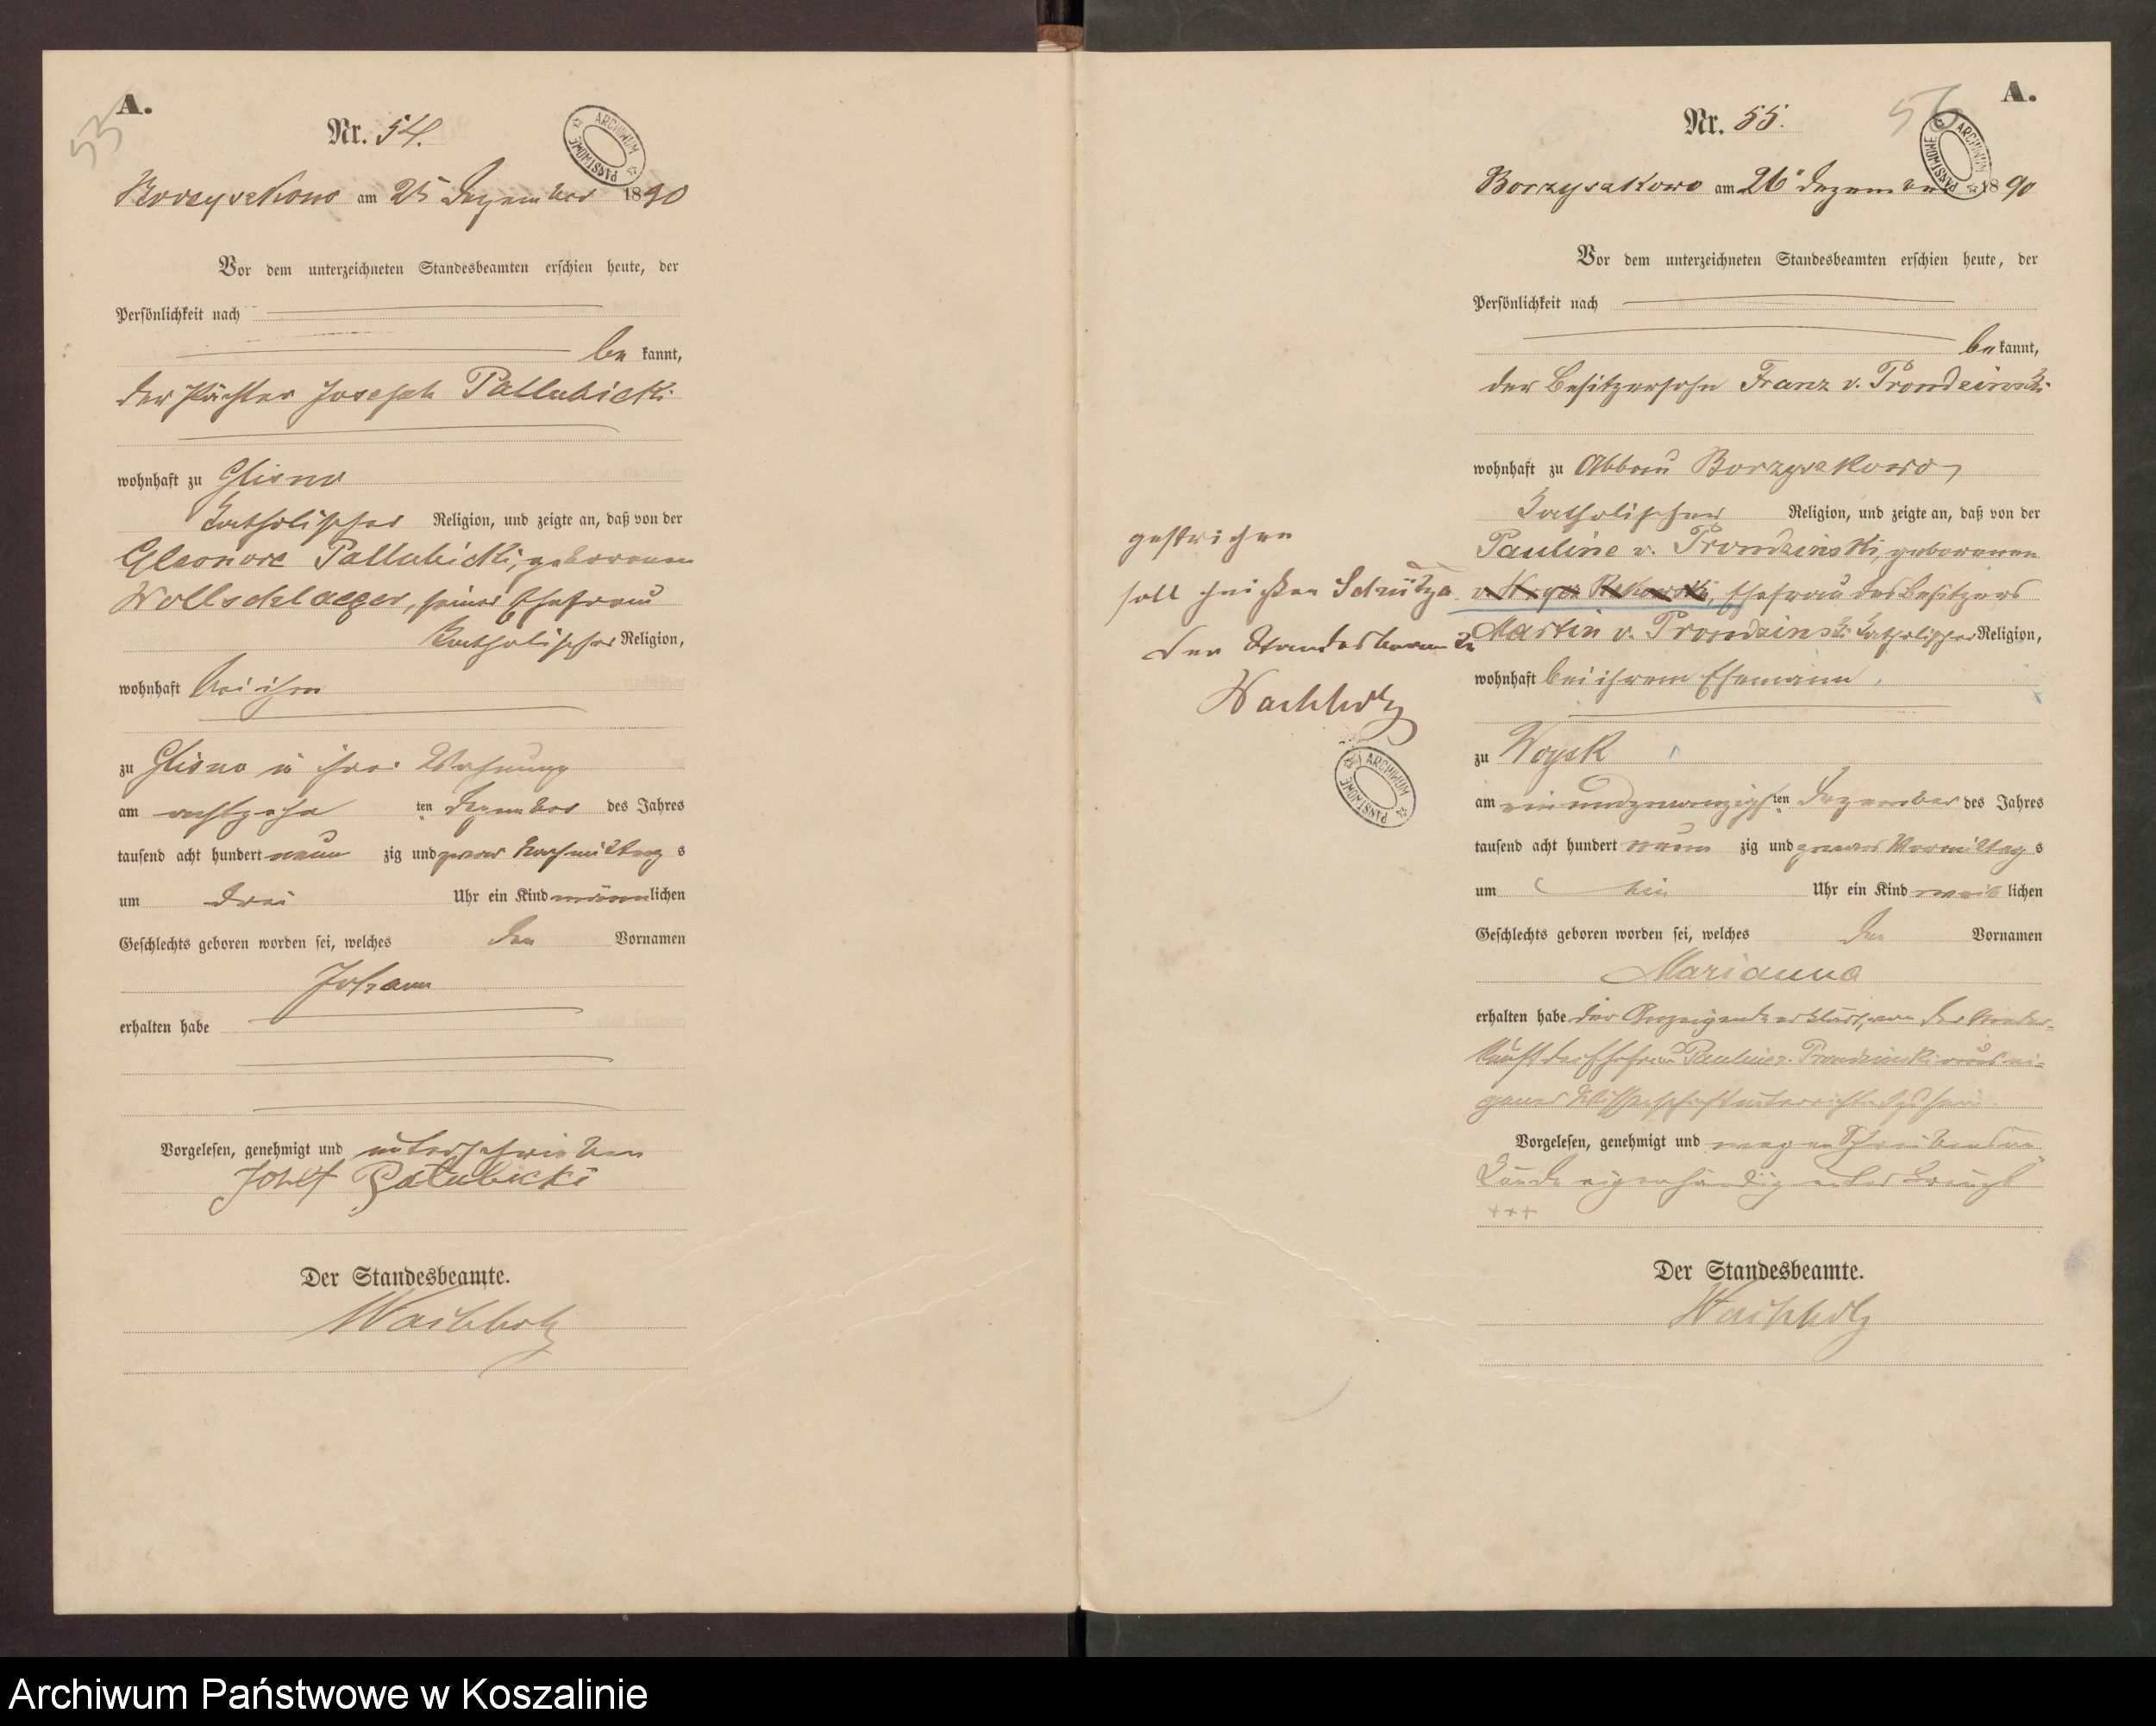 A.
53
Nr. 54.
ARCHIWUM PAŃSTWOWE
Borzyskowo am 25 Dezember 1890
Vor dem unterzeichneten Standesbeamten erschien heute, der
Persönlichkeit nach
be kannt,
der Pächter Joseph Pallubicki
wohnhaft zu Glisno
katholischer Religion, und zeigte an, daß von der
Eleonore Pallubicki, geborenen
Wollschlaeger, seiner Ehefrau
katholischer Religion,
wohnhaft bei ihm
zu Glisno in ihrer Wohnung
am achtzehn ten Dezember des Jahres
tausend acht hundert neun zig und zwar Nachmittag s
um drei Uhr ein Kind männ lichen
Geschlechts geboren worden sei, welches den Vornamen
Johann
erhalten habe
Vorgelesen, genehmigt und unterschrieben
Josef Pałubicki
Der Standesbeamte.
Wachholz
gestrichen
soll heißen Schütza
Der Standesbeamte
Wachholz
ARCHIWUM PAŃSTWOWE
A.
56
Nr. 55.
ARCHIWUM PAŃSTWOWE
Borzyszkowo am 26 Dezember 1890
Vor dem unterzeichneten Standesbeamten erschien heute, der
Persönlichkeit nach
be kannt,
der Besitzersohn Franz v. Prondzinski
wohnhaft zu Abbau Borzyskowo,
katholischer Religion, und zeigte an, daß von der
Pauline v. Prondzinski, geborenen
v. Rekowski, Ehefrau des Besitzers
Martin v. Prondzinski katholischer Religion,
wohnhaft bei ihrem Ehemann,
zu Woysk
am ein und zwanzigs ten Dezember des Jahres
tausend acht hundert neun zig und zwar Vormittag s
um ein Uhr ein Kind weib lichen
Geschlechts geboren worden sei, welches den Vornamen
Marianna
erhalten habe der Anzeigende erklärt, von der Nieder-
kunft der Ehefrau Pauline v. Prondzinski aus ei-
gener Wissenschaft unterrichtet zu sein.
Vorgelesen, genehmigt und wegen Schreibensun-
kunde eigenhändig unterkreuzt
+++
Der Standesbeamte.
Wachholz
Archiwum Państwowe w Koszalinie